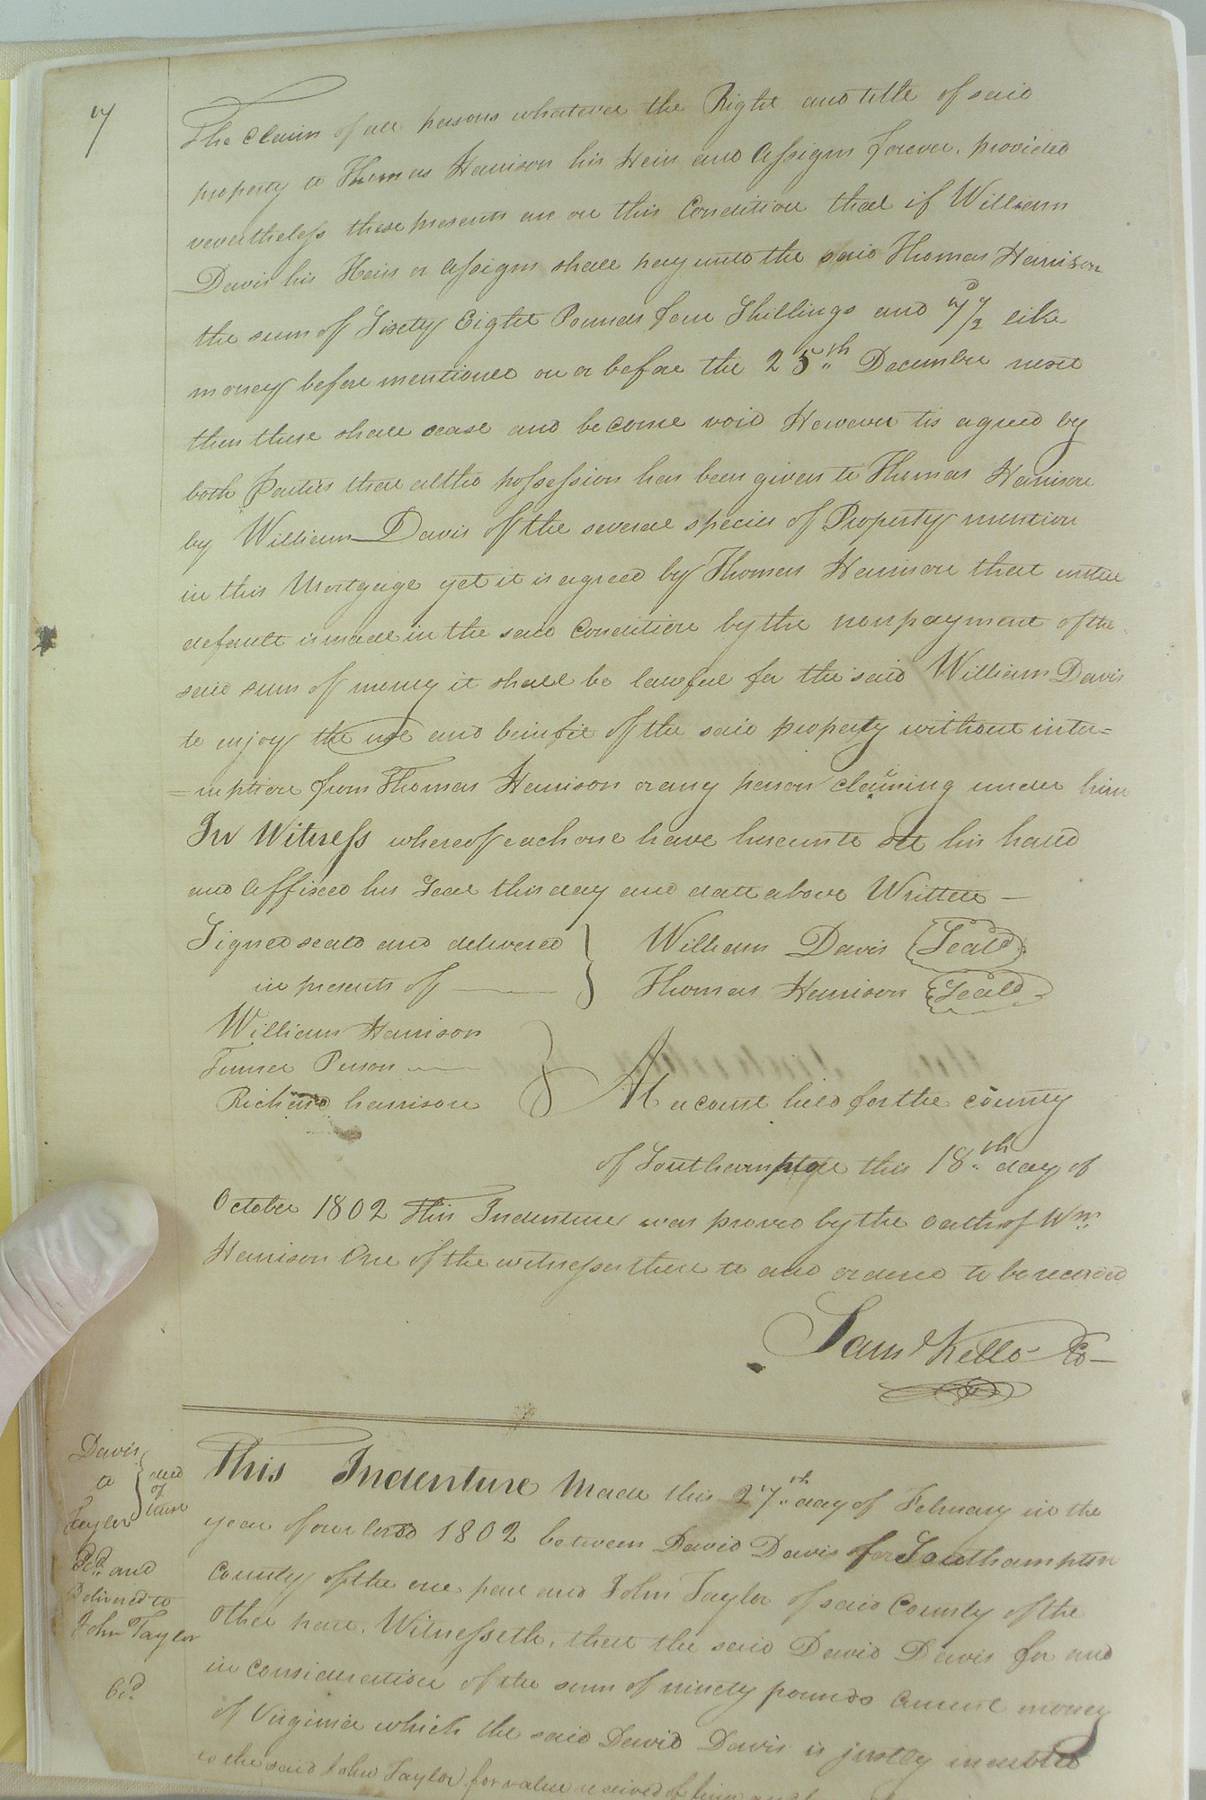 7
The Claim of all persons whatever the Right and title of said
property to Thomas Harrison his Heirs and Assigns forever. provided
nevertheless these presents are on this Condition that if William
Davis his Heirs or Assigns shall pay unto the said Thomas Harrison
the sum of Sixty Eight Pounds four Shillings and 7d/2 like
money before mentioned on or before the 25th December next
then these shall cease and become void However tis agreed by
both Parties that altho possession has been given to Thomas Harrison
by William Davis of the several species of Property mention
in this Mortgage yet it is agreed by Thomas Harrison that untill
default is made in the said Condition by the nonpayment of the
said sum of money it shall be lawful for the said William Davis
to enjoy the use and benifit of the said property without inter=
=ruption from Thomas Harrison or any person claiming under him
In Witness whereof each one have hereunto set his hand
and Affixed his Seal this day and date above Written —
Signed seald and delivered } William Davis (Seald)
in presents of — Thomas Harrison (Seald)
William Harrison
Turner Person —
Richard harrison
At a court held for the county
of Southampton this 18th day of
October 1802 This Indenture was proved by the Oath of Wm.
Harrison One of the witnesses there to and ordered to be recorded
Saml Kello Co —
Davis
to
Taylor
} deed
of
trust
and
Delivered to
John Taylor
This Indenture Made this 27th day of February in the
year of our lord 1802 between David Davis of Southampton
County of the one part and John Taylor of said County of the
Other part. Witnesseth, that the said David Davis for and
in consideration of the sum of ninety pounds Current money
of Virginia which the said David Davis is justly indebted
to the said John Taylor for value received of him